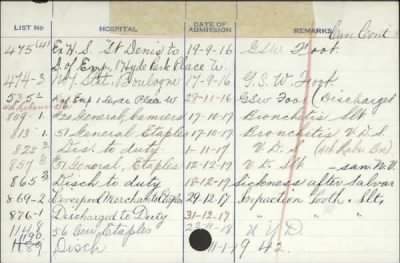 LIST No HOSPITAL DATE OF ADMISSION REMARKS
475 Ex H.S. St Denis to 19-9-16 G.S.W. Foot. Gun Cont
D of Emp, 1 Hyde Park Place W
474-3 Stat. Boulogne 17-9-16 G.S.W. Foot
535-2 D of Emp 1 Place W 28-11-16 GSW Foot (Discharged
809-1 20 General, Camiers 17-10-17 Bronchitis Slt
813-1 51 General Etaples 17-10-17 Bronchitis V.D.S.
828-3 Dis. to duty 1-11-17 V.D.S. (4th Bn)
857-3 51 General, Etaples 12-12-17 V.D. Slt
865-3 Disch to duty 18-12-17 Sickness after Salvar
869-2 Merchants Etaples 29.12.17 Impaction Tooth. Slt.
876-1 Discharged to Duty 31-12-17 " " "
1148 56 Etaples 23-11-18 N.Y.D.
1190
1189 Disch 11 1 19 42.